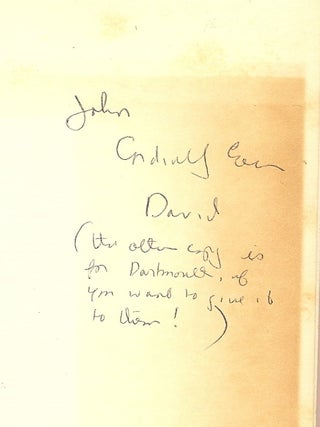 John
Cordially Ever
David
(the other copy is
for Dartmouth, if
you want to give it
to them!)